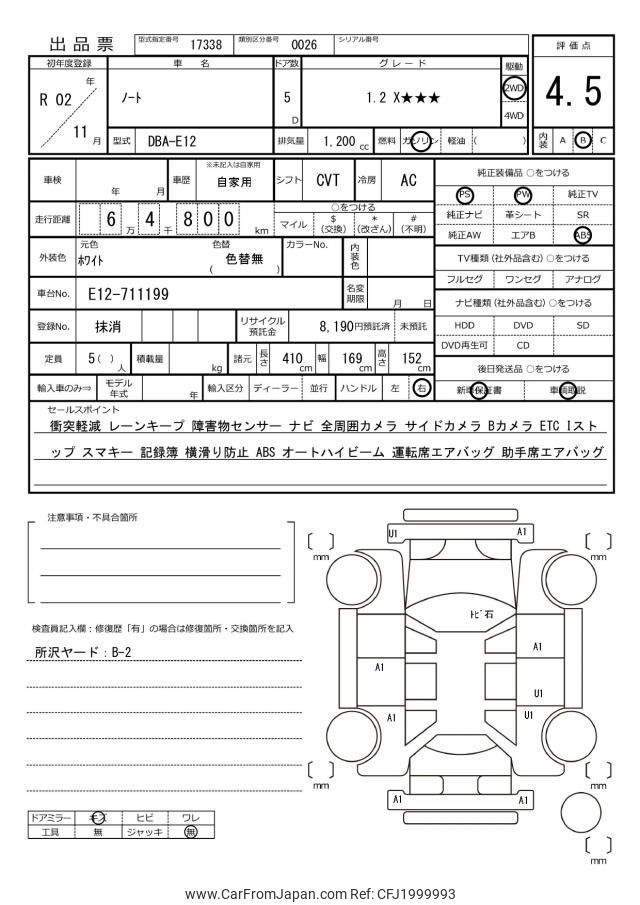 出品票 型式指定番号 17338 類別区分番号 0026 シリアル番号
評価点
4.5
内装 A B C
初年度登録 車名 ドア数 グレード 駆動
R 02 年 ノート 5 D 1.2 X★★★ 2WD
11 月 4WD
型式 DBA-E12 排気量 1,200 cc 燃料 ガソリン 軽油 ( )
車検 年 月 車歴 ※未記入は自家用 自家用 シフト CVT 冷房 AC
走行距離 6 4 万 千 8 0 0 km
○をつける
マイル $(交換) *(改ざん) #(不明)
外装色 元色 ホワイト 色替 ( 色替無 ) カラーNo. 内装色
車台No. E12-711199 名変期限 月 日
登録No. 抹消 リサイクル預託金 8,190円預託済 未預託
定員 5( )人 積載量 kg 諸元 長さ 410 cm 幅 169 cm 高さ 152 cm
輸入車のみ⇒ モデル年式 年 輸入区分 ディーラー 並行 ハンドル 左 右
純正装備品 ○をつける
PS PW 純正TV
純正ナビ 革シート SR
純正AW エアB ABS
TV種類(社外品含む)○をつける
フルセグ ワンセグ アナログ
ナビ種類(社外品含む)○をつける
HDD DVD SD
DVD再生可 CD
後日発送品 ○をつける
新車保証書 車輌取説
セールスポイント
衝突軽減 レーンキープ 障害物センサー ナビ 全周囲カメラ サイドカメラ Bカメラ ETC Iスト
ップ スマキー 記録簿 横滑り防止 ABS オートハイビーム 運転席エアバッグ 助手席エアバッグ
注意事項・不具合箇所
検査員記入欄：修復歴「有」の場合は修復箇所・交換箇所を記入
所沢ヤード：B-2
ドアミラー キズ ヒビ ワレ
工具 無 ジャッキ 無
U1 A1
mm mm
トビ石
A1
A1
U1
A1 U1
mm mm
A1 A1
mm
www.CarFromJapan.com Ref: CFJ1999993